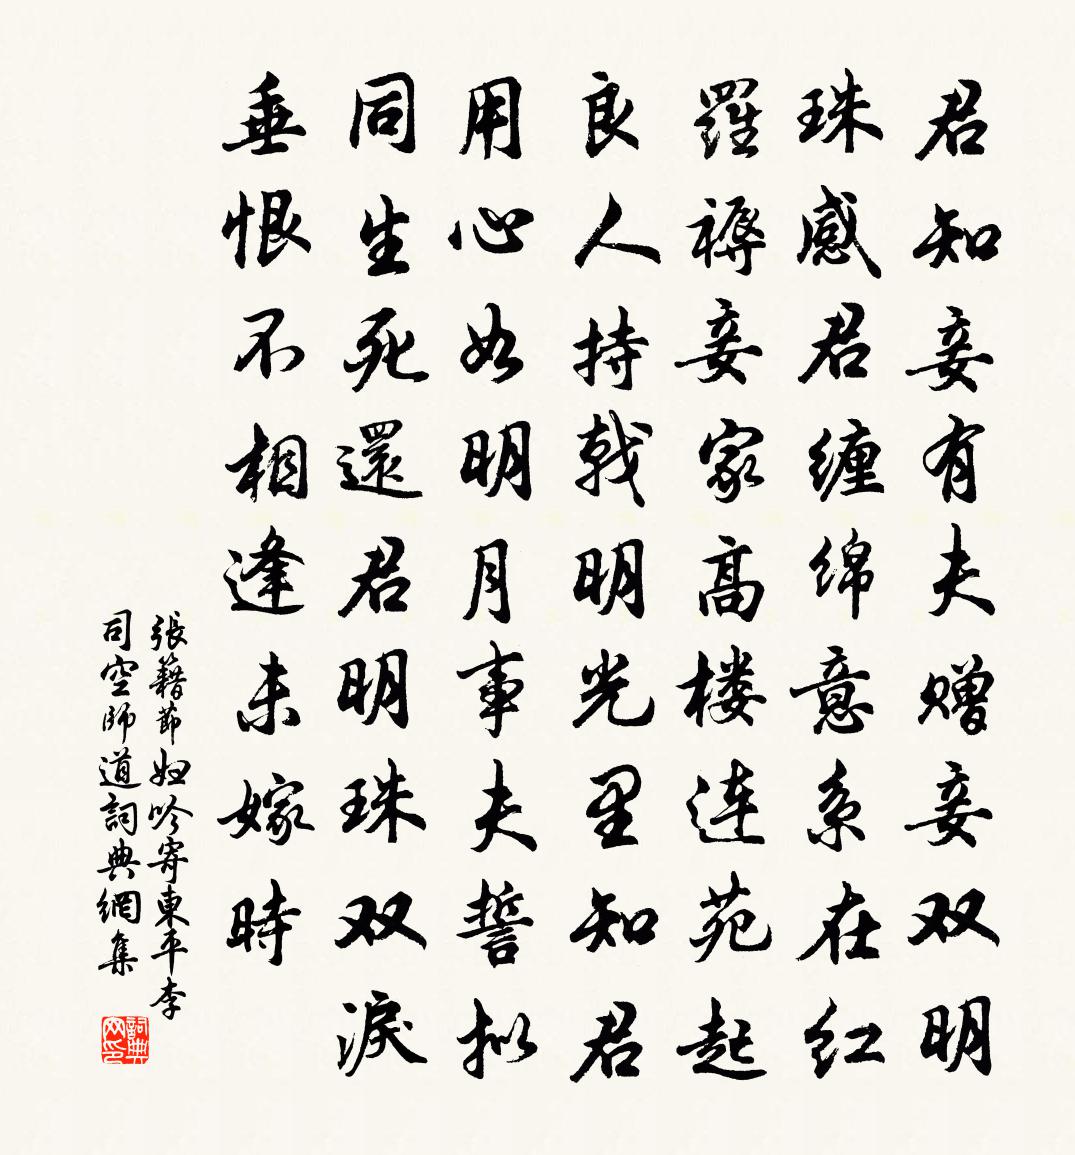 君知妾有夫赠妾双明
珠感君缠绵意系在红
羅褥妾家髙楼连苑起
良人持戟明光里知君
用心如明月事夫誓拟
同生死還君明珠双淚
垂恨不相逢未嫁時
張籍節妇吟寄東平李
司空師道詞典網集
詞典网印